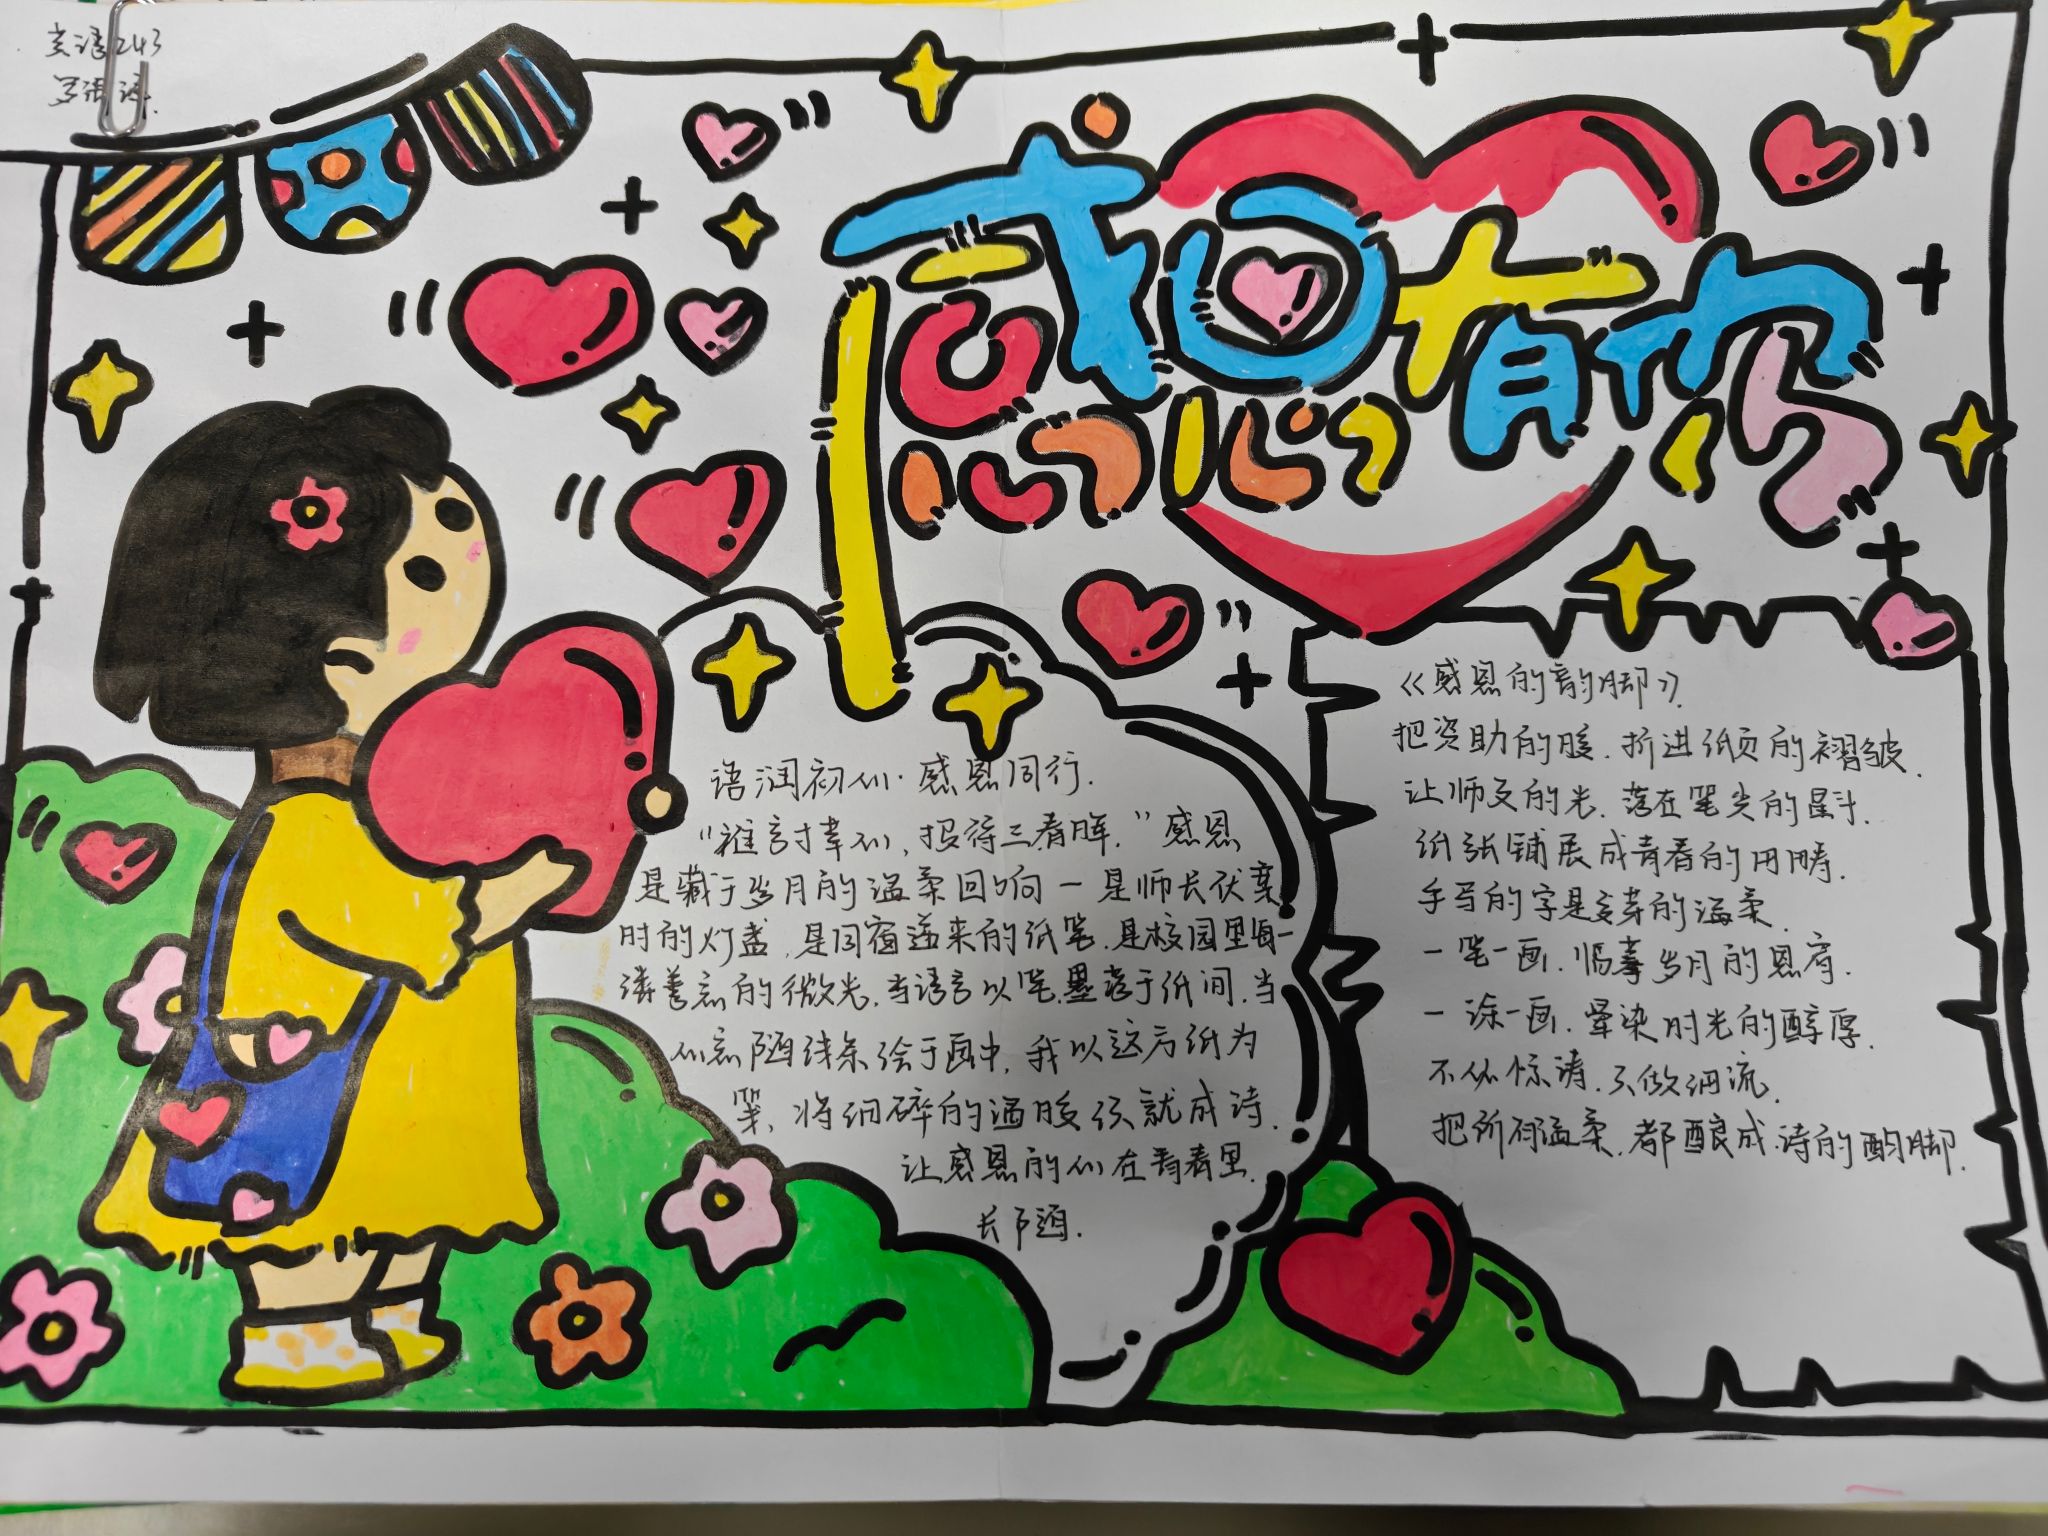 英语243
感恩有你
语润初心·感恩同行.
“谁言寸草心,报得三春晖.”感恩
是藏于岁月的温柔回响—是师长伏案
时的灯盏,是同窗递来的纸笔,是校园里每一
善意的微光.当语言以笔墨落于纸间,当
心意随线条绘于画中,我以这方纸为
笺,将细碎的温暖 就成诗.
让感恩的心在青春里.
长 随.
《感恩的韵脚》
把资助的暖.折进纸页的褶皱.
让师友的光.落在笔尖的星斗.
纸张铺展成青春的田畴.
手写的字是发芽的温柔.
一笔一画.临摹岁月的恩 .
一涂一画.晕染时光的醇厚.
不必惊涛.只做细流.
把所有温柔.都酿成.诗的韵脚.